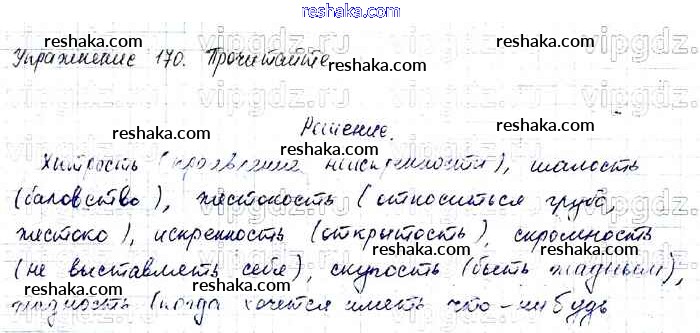 reshaka.com
vipgdz.ru
reshaka.com reshaka.com
Упражнение 170. Прочитайте
reshaka.com
vipgdz.ru
reshaka.com
Решение.
reshaka.com
Хитрость (проявление неискренности), шалость
vipgdz.ru
(баловство), жестокость (относиться грубо,
reshaka.com
жестоко), искренность (открытость), скромность
reshaka.com reshaka.com
(не выставлять себя), скупость (быть жадным),
reshaka.com
жадность (когда хочется иметь что-нибудь
reshaka.com